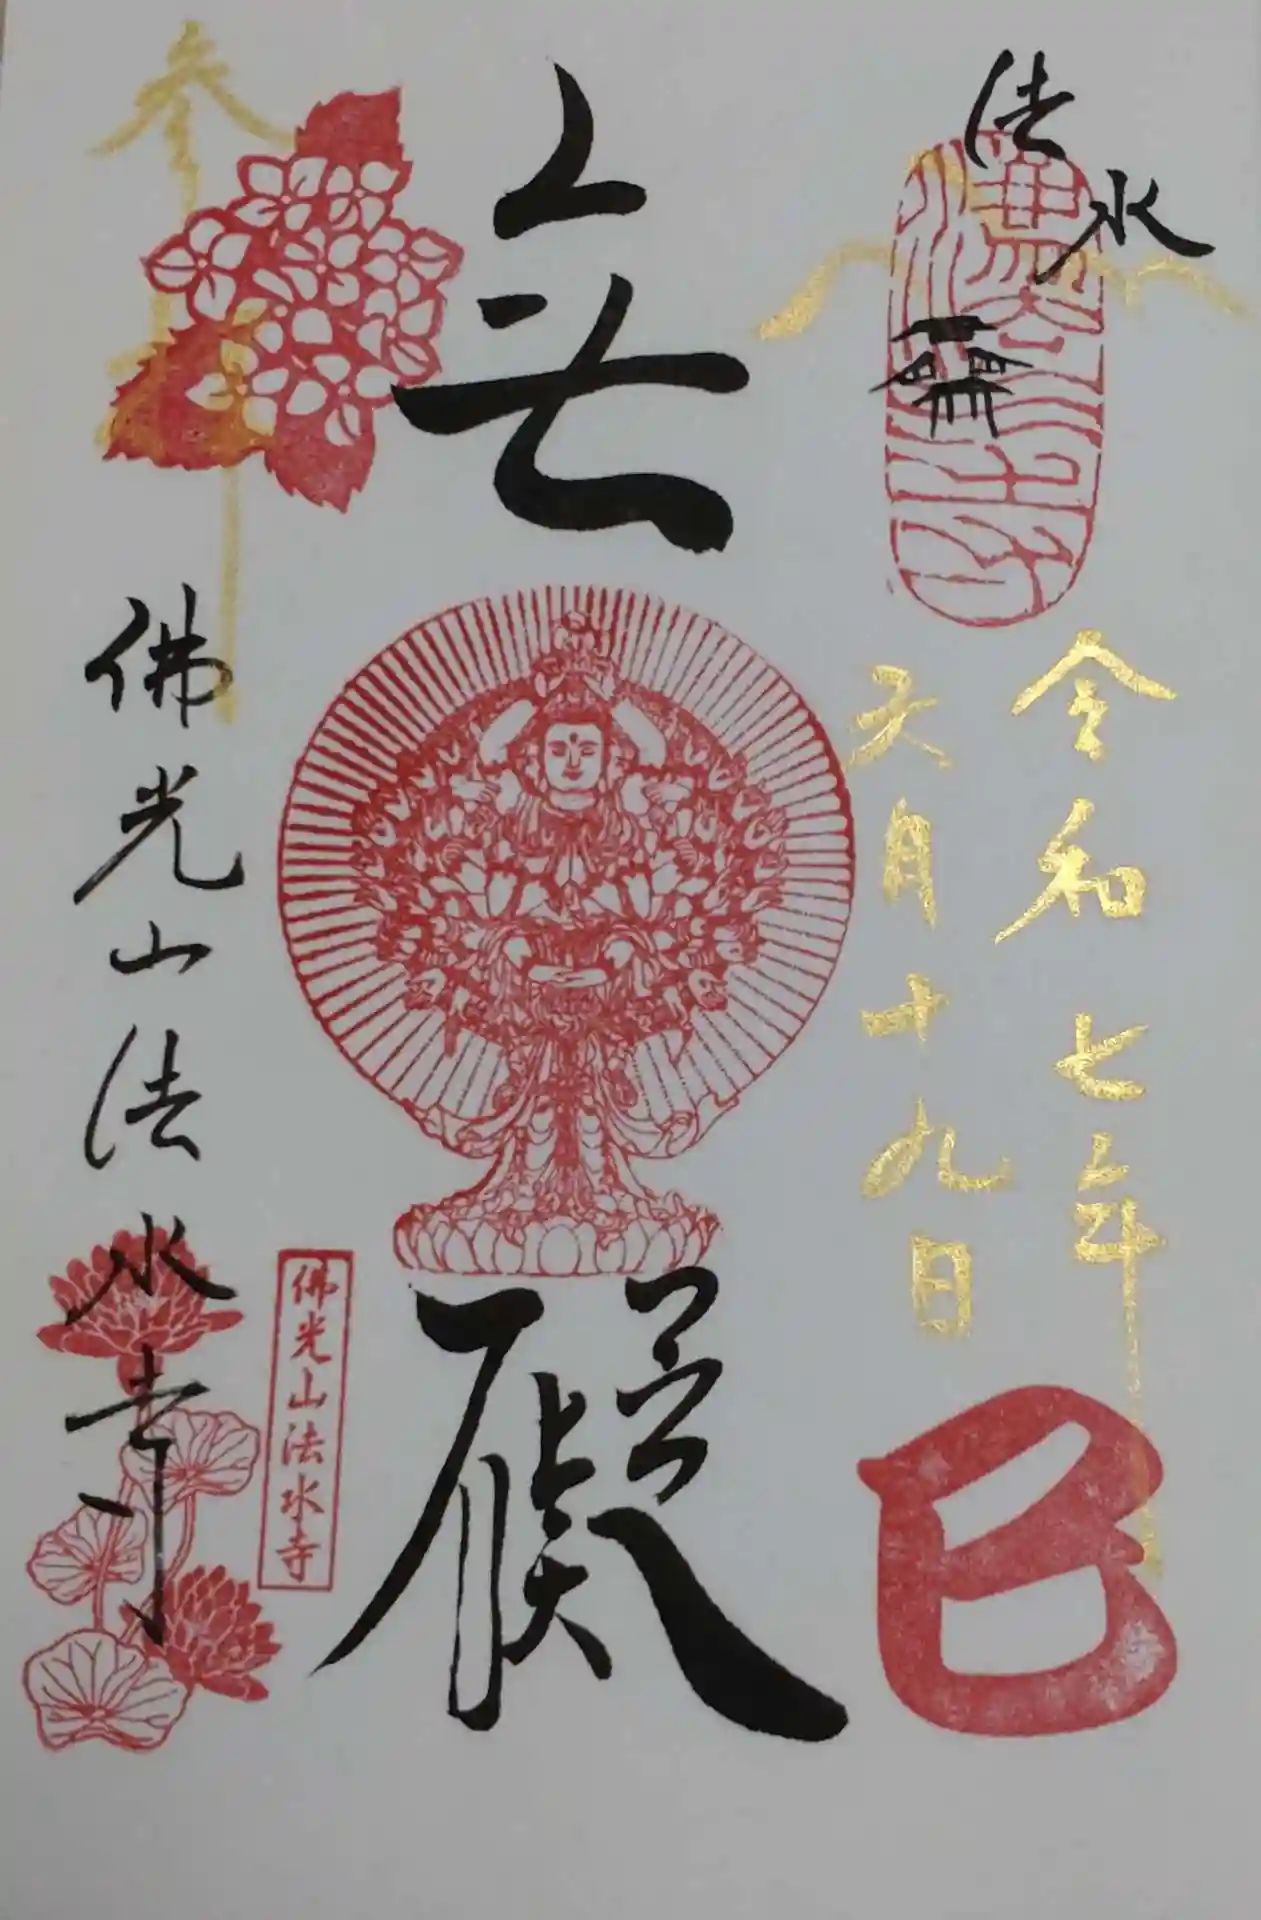 法水
令和七年
六月十九日
巳
無
礙
参拝
佛光山法水寺
佛光山法水寺